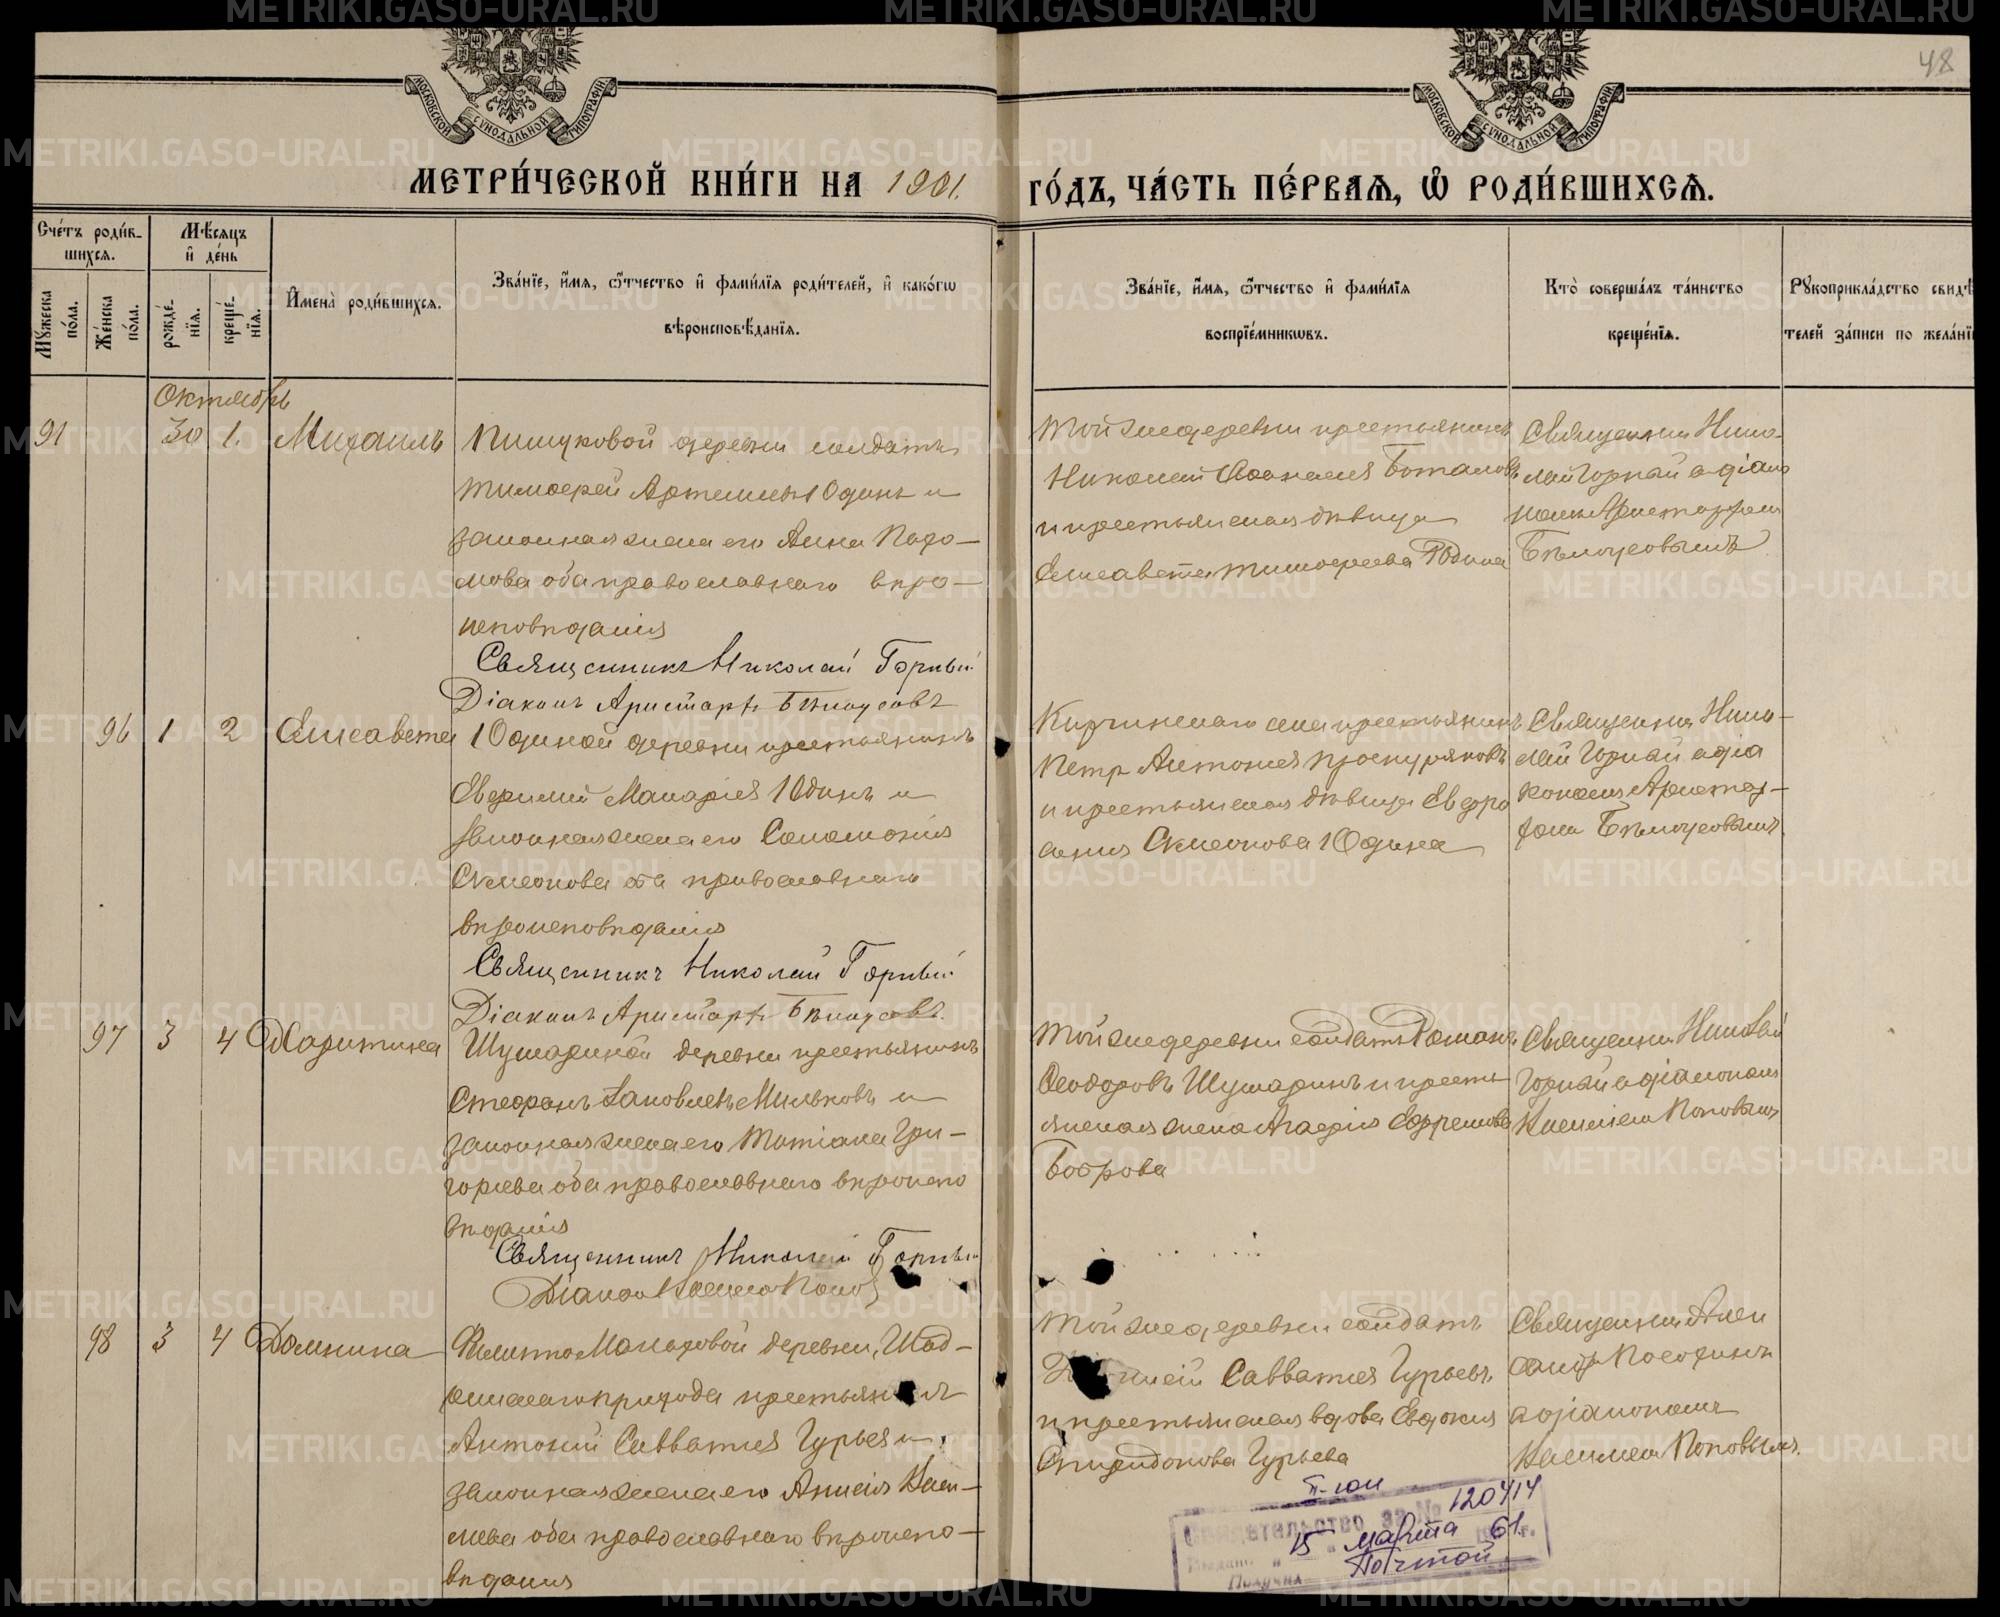 48
МОСКОВСКОЙ СУНОДАЛЬНОЙ ТИПОГРАФІИ
МОСКОВСКОЙ СУНОДАЛЬНОЙ ТИПОГРАФІИ
МЕТРИ́ЧЕСКОЙ КНИ́ГИ НА 1901. ГО́ДЪ, ЧА́СТЬ ПЕ́РВАѦ, Ѽ РОДИ́ВШИХСѦ.
Сче́тъ роди́в-
шихсѧ.
Мѣ́сѧцъ
и҆ де́нь
Мꙋ́жеска по́ла.
Же́нска по́ла.
рожде́-
нїѧ.
креще́-
нїѧ.
И҆мена̀ роди́вшихсѧ.
Зва́нїе, и҆́мѧ, ѻ҆́тчество и҆ фами́лїѧ роди́телей, и҆ како́гѡ
вѣроисповѣ́данїѧ.
Зва́нїе, и҆́мѧ, ѻ҆́тчество и҆ фами́лїѧ
воспрїе́мникѡвъ.
Кто̀ соверша́лъ та́инство
креще́нїѧ.
Рꙋкоприкла́дство свидѣ́
телей за́писи по жела́нї
Октябрь
91 30 1. Михаилъ
Пищуковой деревни солдатъ
Тимофей Артемьевъ Юдинъ и
законная жена его Анна Пахо-
мова оба православнаго вѣро-
исповѣданія
Священникъ Николай Горный
Діаконъ Аристархъ Бѣлоусовъ
Той же деревни крестьянинъ
Николай Боталовъ
и крестьянская дѣвица
Елисавета Тимофеева Юдина
Священникъ Нико-
лай Горный съ діако
номъ Аристархом
Бѣлоусовымъ
96 1 2 Елисавета
Юдиной деревни крестьянинъ
Евфимій Макаріевъ Юдинъ и
законная жена его Соломонія
Симеонова оба православнаго
вѣроисповѣданія
Священникъ Николай Горный
Діаконъ Аристархъ Бѣлоусовъ.
Киргинскаго села крестьянинъ
Петръ Антоніевъ Проскуряковъ
и крестьянская дѣвица Евфро
синія Симеонова Юдина
Священникъ Нико-
лай Горный съ діа
кономъ Аристар-
хомъ Бѣлоусовымъ.
97 3 4 Харитина
Шушариной деревни крестьянинъ
Стефанъ Іаковлевъ Мильковъ и
законная жена его Татіана Гри-
горьева оба православнаго вѣроиспо
вѣданія
Священникъ Николай Горный
Діаконъ Попов
Той же деревни солдатъ Романъ
Феодоровъ Шушаринъ и кресть
янская жена Агафія Ефремова
Боброва
Священникъ Николай
Горный съ діакономъ
Поповымъ
98 3 4 Домнина
Макаровой деревни, Шад-
ринскаго прихода крестьянинъ
Антоній Савватіевъ Гурьевъ и
законная жена его Анисія
оба православнаго вѣроиспо-
вѣданія
Той же деревни солдатъ
Савватіевъ Гурьевъ
и крестьянская вдова Евдокія
Спиридонова Гурьева
Священникъ Алек
сандръ
съ діакономъ
Поповымъ.
Свидетельство за № 120414
Выдано "15" марта 61 г.
Получил Почтой